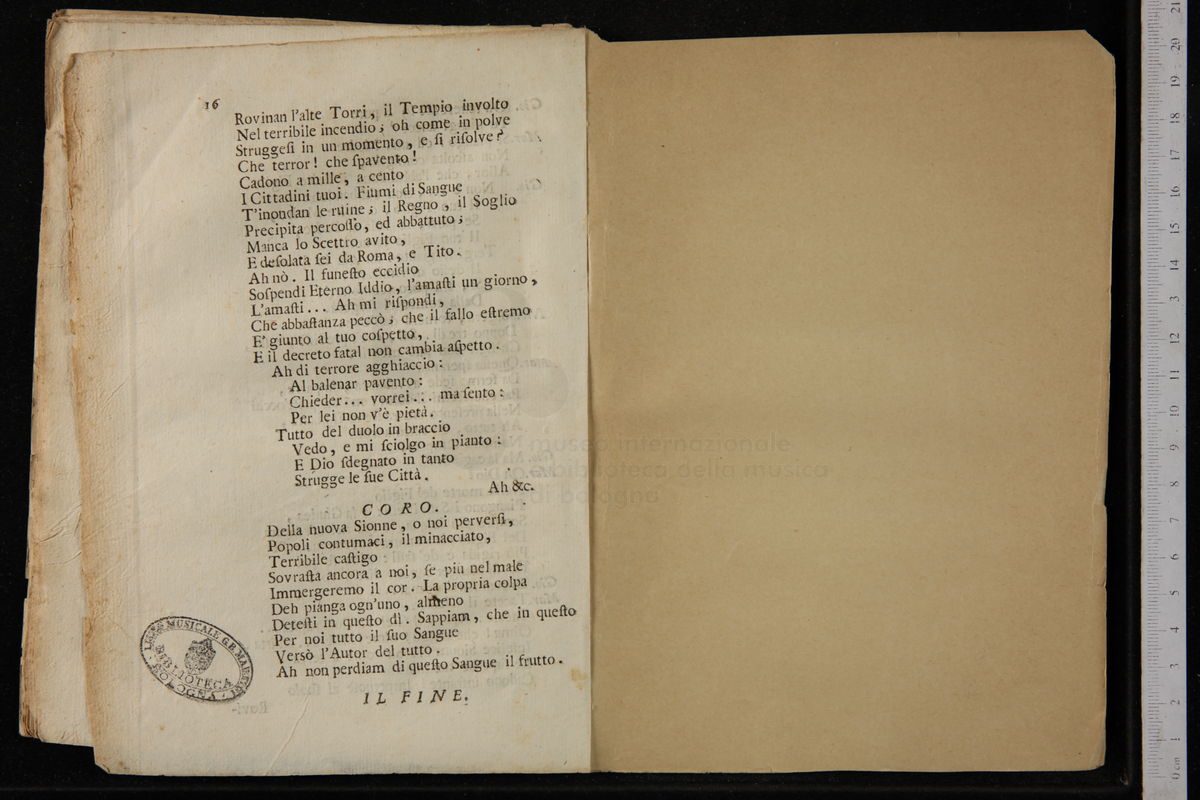 16
Rovinan l'alte Torri, il Tempio involto
Nel terribile incendio; oh come in polve
Struggeſi in un momento, e ſi riſolve?
Che terror! che ſpavento!
Cadono a mille, a cento
I Cittadini tuoi. Fiumi di Sangue
T'inondan le ruine; il Regno, il Soglio
Precipita percoſſo, ed abbattuto;
Manca lo Scettro avito,
E deſolata ſei da Roma, e Tito.
Ah nò. Il funeſto eccidio
Soſpendi Eterno Iddio, l'amaſti un giorno,
L'amaſti... Ah mi riſpondi,
Che abbaſtanza peccò; che il fallo eſtremo
E' giunto al tuo coſpetto,
E il decreto fatal non cambia aſpetto.
Ah di terrore agghiaccio:
Al balenar pavento:
Chieder... vorrei... ma ſento:
Per lei non v'è pietà.
Tutto del duolo in braccio
Vedo, e mi ſciolgo in pianto:
E Dio ſdegnato in tanto
Strugge le ſue Città.
Ah &c.
CORO.
Della nuova Sionne, o noi perverſi,
Popoli contumaci, il minacciato,
Terribile caſtigo
Sovraſta ancora a noi, ſe più nel male
Immergeremo il cor. La propria colpa
Deh pianga ogn'uno, almeno
Deteſti in queſto dì. Sappiam, che in queſto
Per noi tutto il ſuo Sangue
Versò l'Autor del tutto.
Ah non perdiam di queſto Sangue il frutto.
IL FINE.
LICEO MUSICALE G.B. MARTINI
BIBLIOTECA
BOLOGNA
museo internazionale
e biblioteca della musica
di bologna